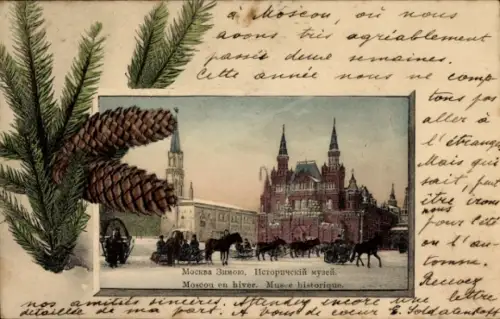 à Moscou, où nous
avons très agréablement
passé deux semaines.
Cette année nous ne comp
tons pas
aller à
l'étrange
Mais qui
sait, peut
être irons
nous
pour l'été
ou l'au
tomne.
Recevez
Москва Зимою, Историческій музей.
Moscou en hiver. Musée historique.
nos amitiés sincères. Attendez encore une lettre
détaillée de ma part. A vous de coeur E.